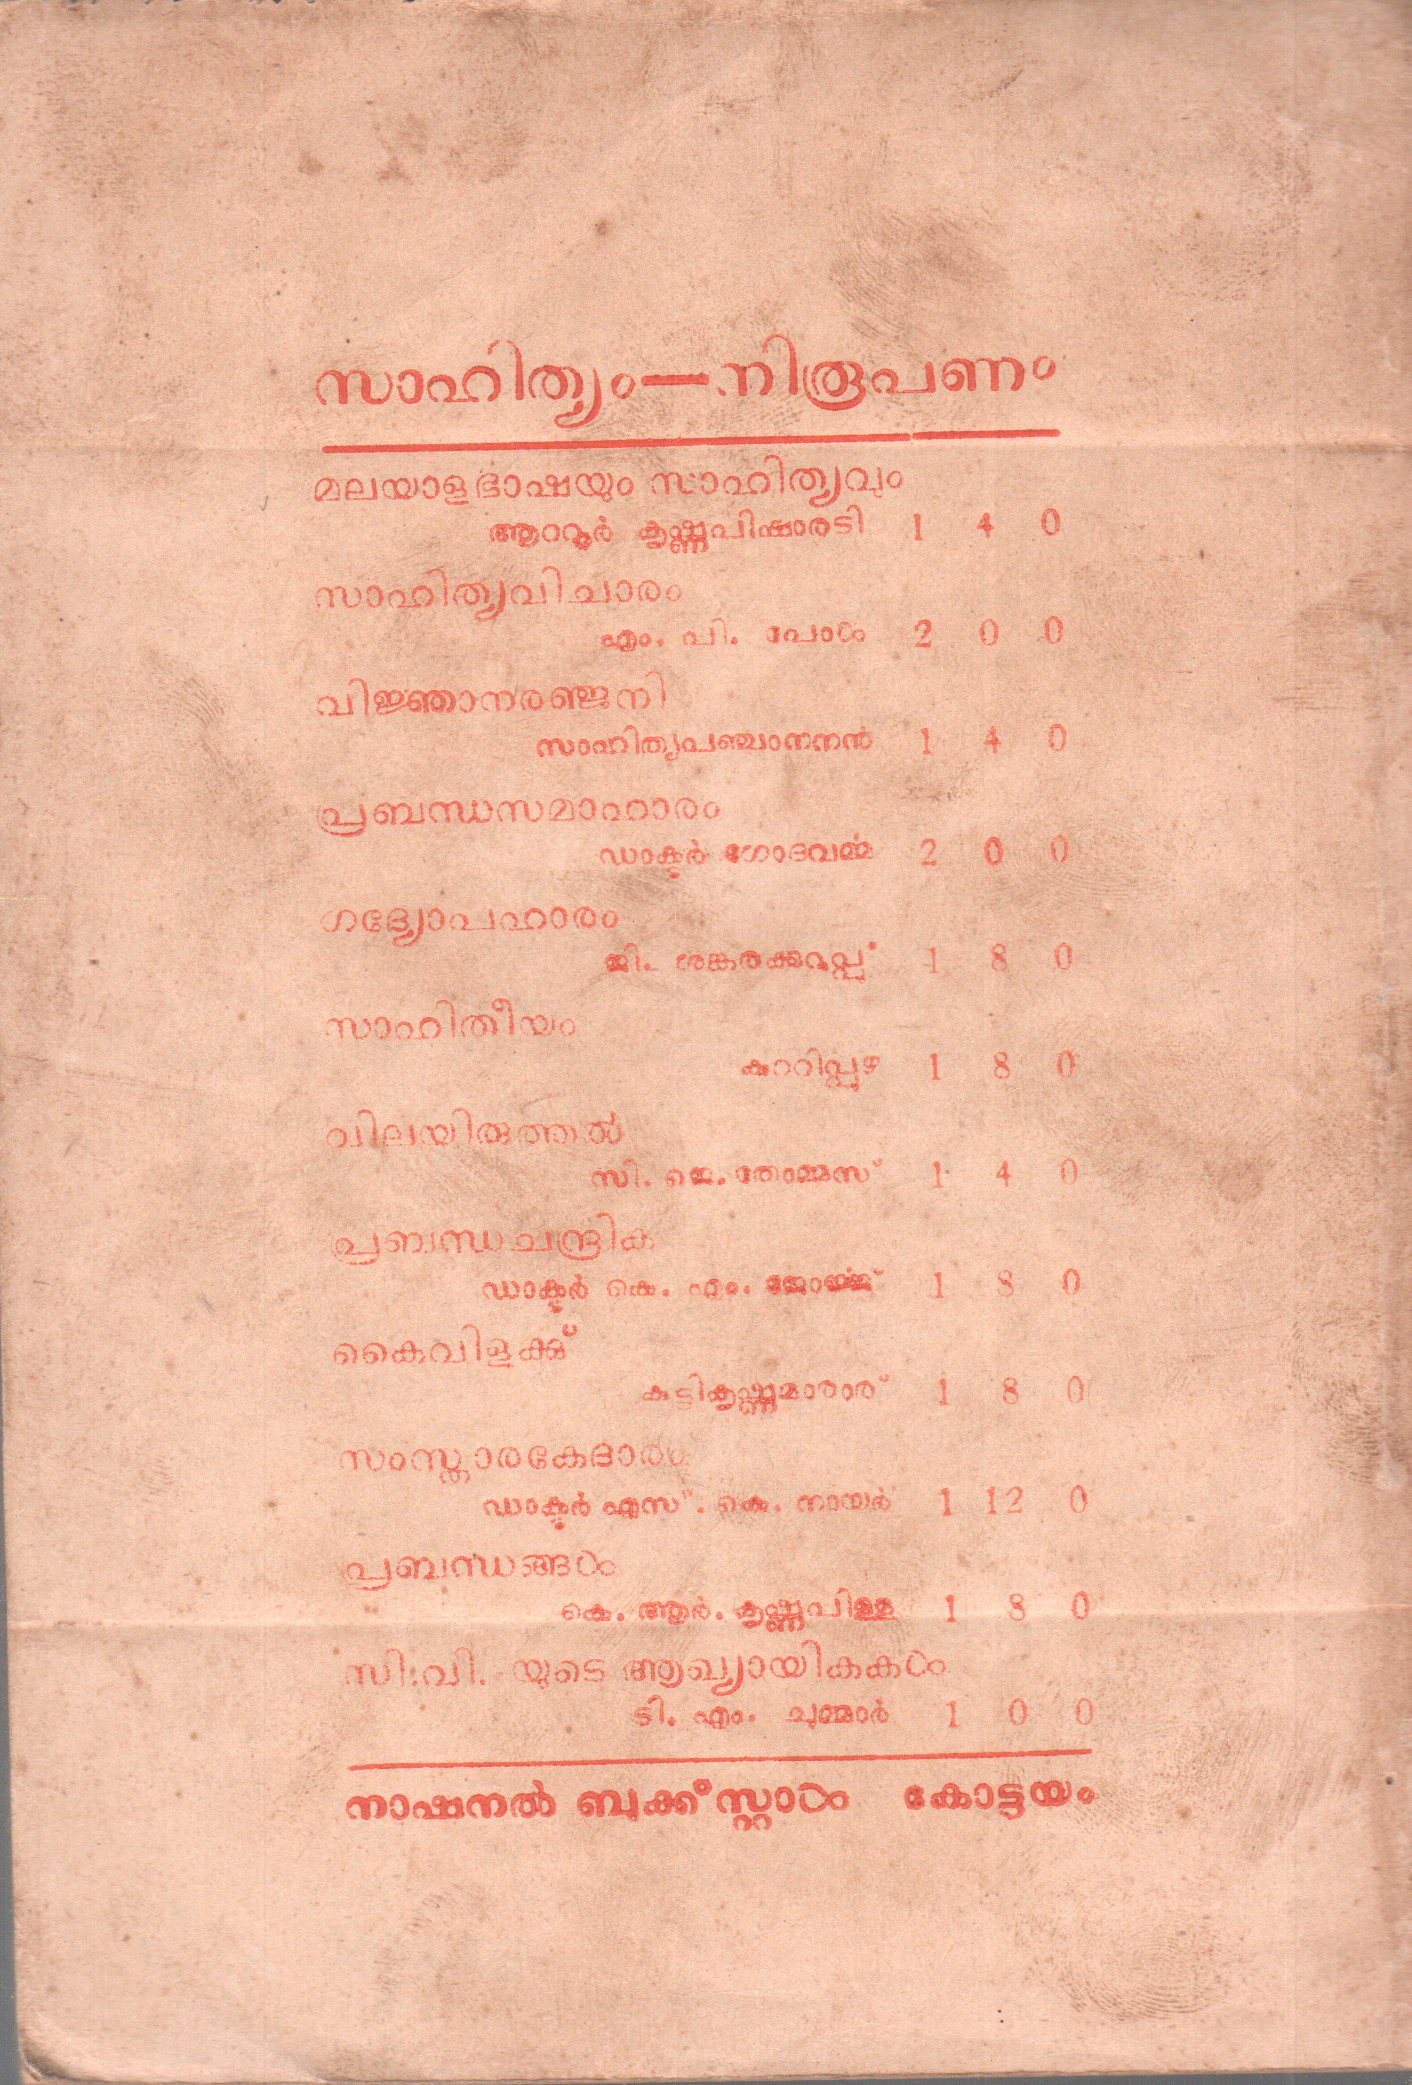 സാഹിത്യം—നിരൂപണം
മലയാളഭാഷയും സാഹിത്യവും
ആററൂർ കൃഷ്ണപിഷാരടി 1 4 0
സാഹിത്യവിചാരം
എം. പി. പോൾ 2 0 0
വിജ്ഞാനരഞ്ജനി
സാഹിത്യപഞ്ചാനനൻ 1 4 0
പ്രബന്ധസമാഹാരം
ഡാക്ടർ ഗോദവർമ്മ 2 0 0
ഗദ്യോപഹാരം
ജി. ശങ്കരക്കുറുപ്പ് 1 8 0
സാഹിതീയം
കുററിപ്പുഴ 1 8 0
വിലയിരുത്തൽ
സി. ജെ. തോമ്മസ് 1 4 0
പ്രബന്ധചന്ദ്രിക
ഡാക്ടർ കെ. എം. ജോർജ്ജ് 1 8 0
കൈവിളക്ക്
കുട്ടികൃഷ്ണമാരാര് 1 8 0
സംസ്കാരകേദാരം
ഡാക്ടർ എസ്. കെ. നായർ 1 12 0
പ്രബന്ധങ്ങൾ
കെ. ആർ. കൃഷ്ണപിള്ള 1 8 0
സി.വി.-യുടെ ആഖ്യായികകൾ
ടി. എം. ചുമ്മാർ 1 0 0
നാഷനൽ ബുക്ക്സ്റ്റാൾ കോട്ടയം